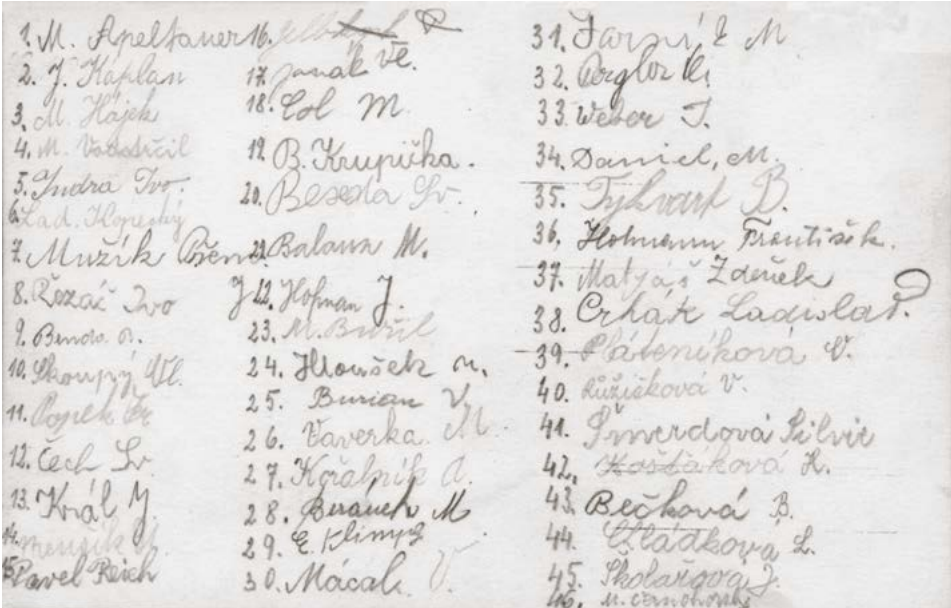 1. M. Apeltauer
2. J. Kaplan
3. M. Hájek
4. M.
5. Jndra Ivo.
6. Lad.
7. Mužík
8. Řezáč Ivo
9. Benda
10. Skoupý Vl.
11. Popek
12. Čech Sv.
13. Král J.
14. Menšík
15. Pavel Reich
16.
17. Janák Vl.
18. Col M.
19. B. Krupička.
20. Beseda Sv.
21. Balaun M.
22. Hofman J.
23. M. Buřil
24. Hloušek M.
25. Burian V.
26. Vaverka M
27. Kořalník A.
28. Beránek M
29. E. Klimeš
30. Mácal V.
31. M
32. Pergler
33. Weber T.
34. Daniel, M.
35. Tykvart B.
36. Hofmann František.
37. Matyáš Zdeněk
38. Crhák Ladislav.
39. Pláteníková V.
40. Růžičková V.
41. Šmerdová Silvie
42. Košťáková H.
43. Bečková B.
44. L.
45. Školařová J.
46. M.